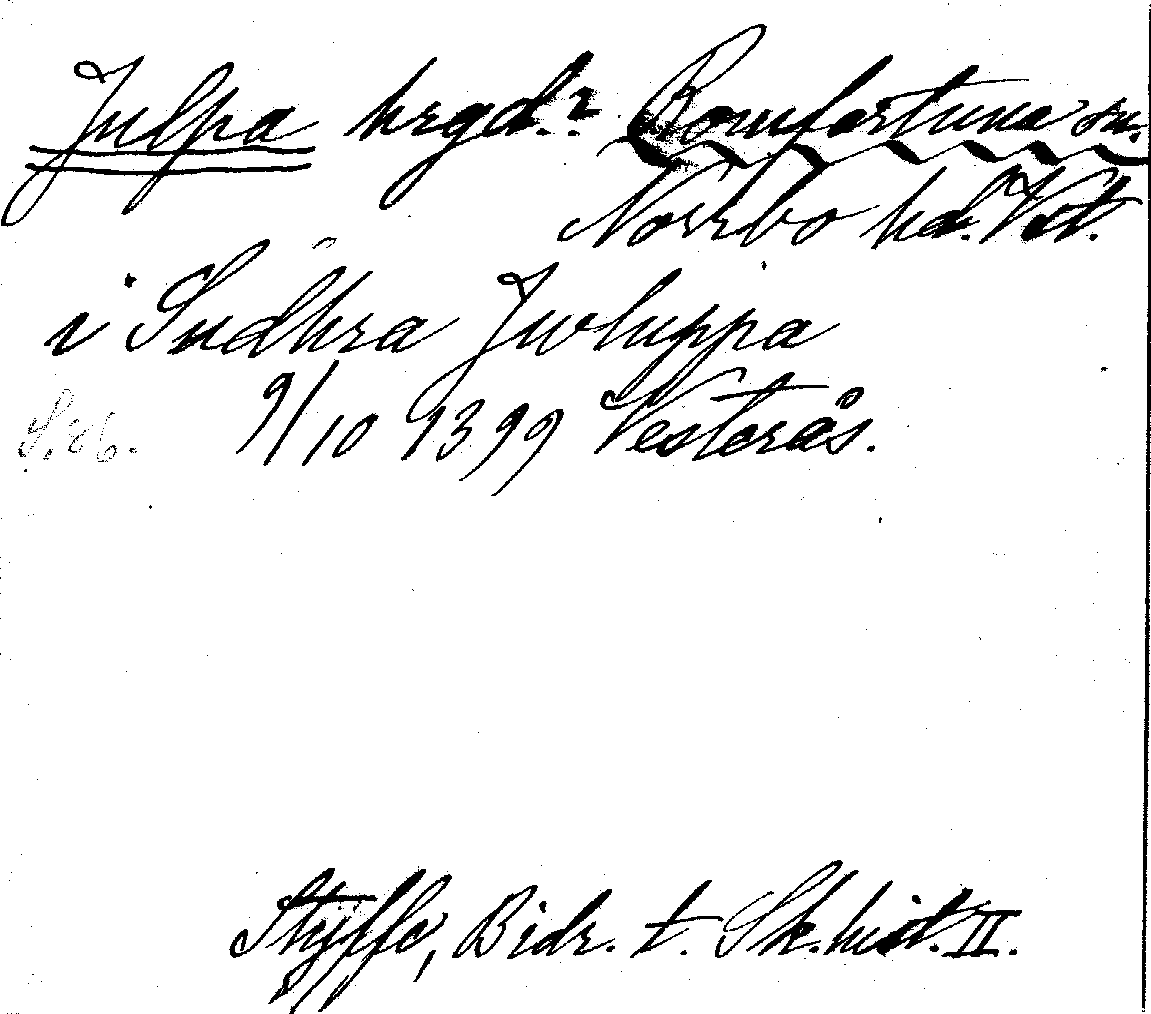 Julpa hrgd.? Romfartuna sn.
Norrbo hd. Vst.
i Sudhra Jwluppa
9/10 1399 Vesterås.
S. 86.
Styffe, Bidr. t. Sk. hist. II.